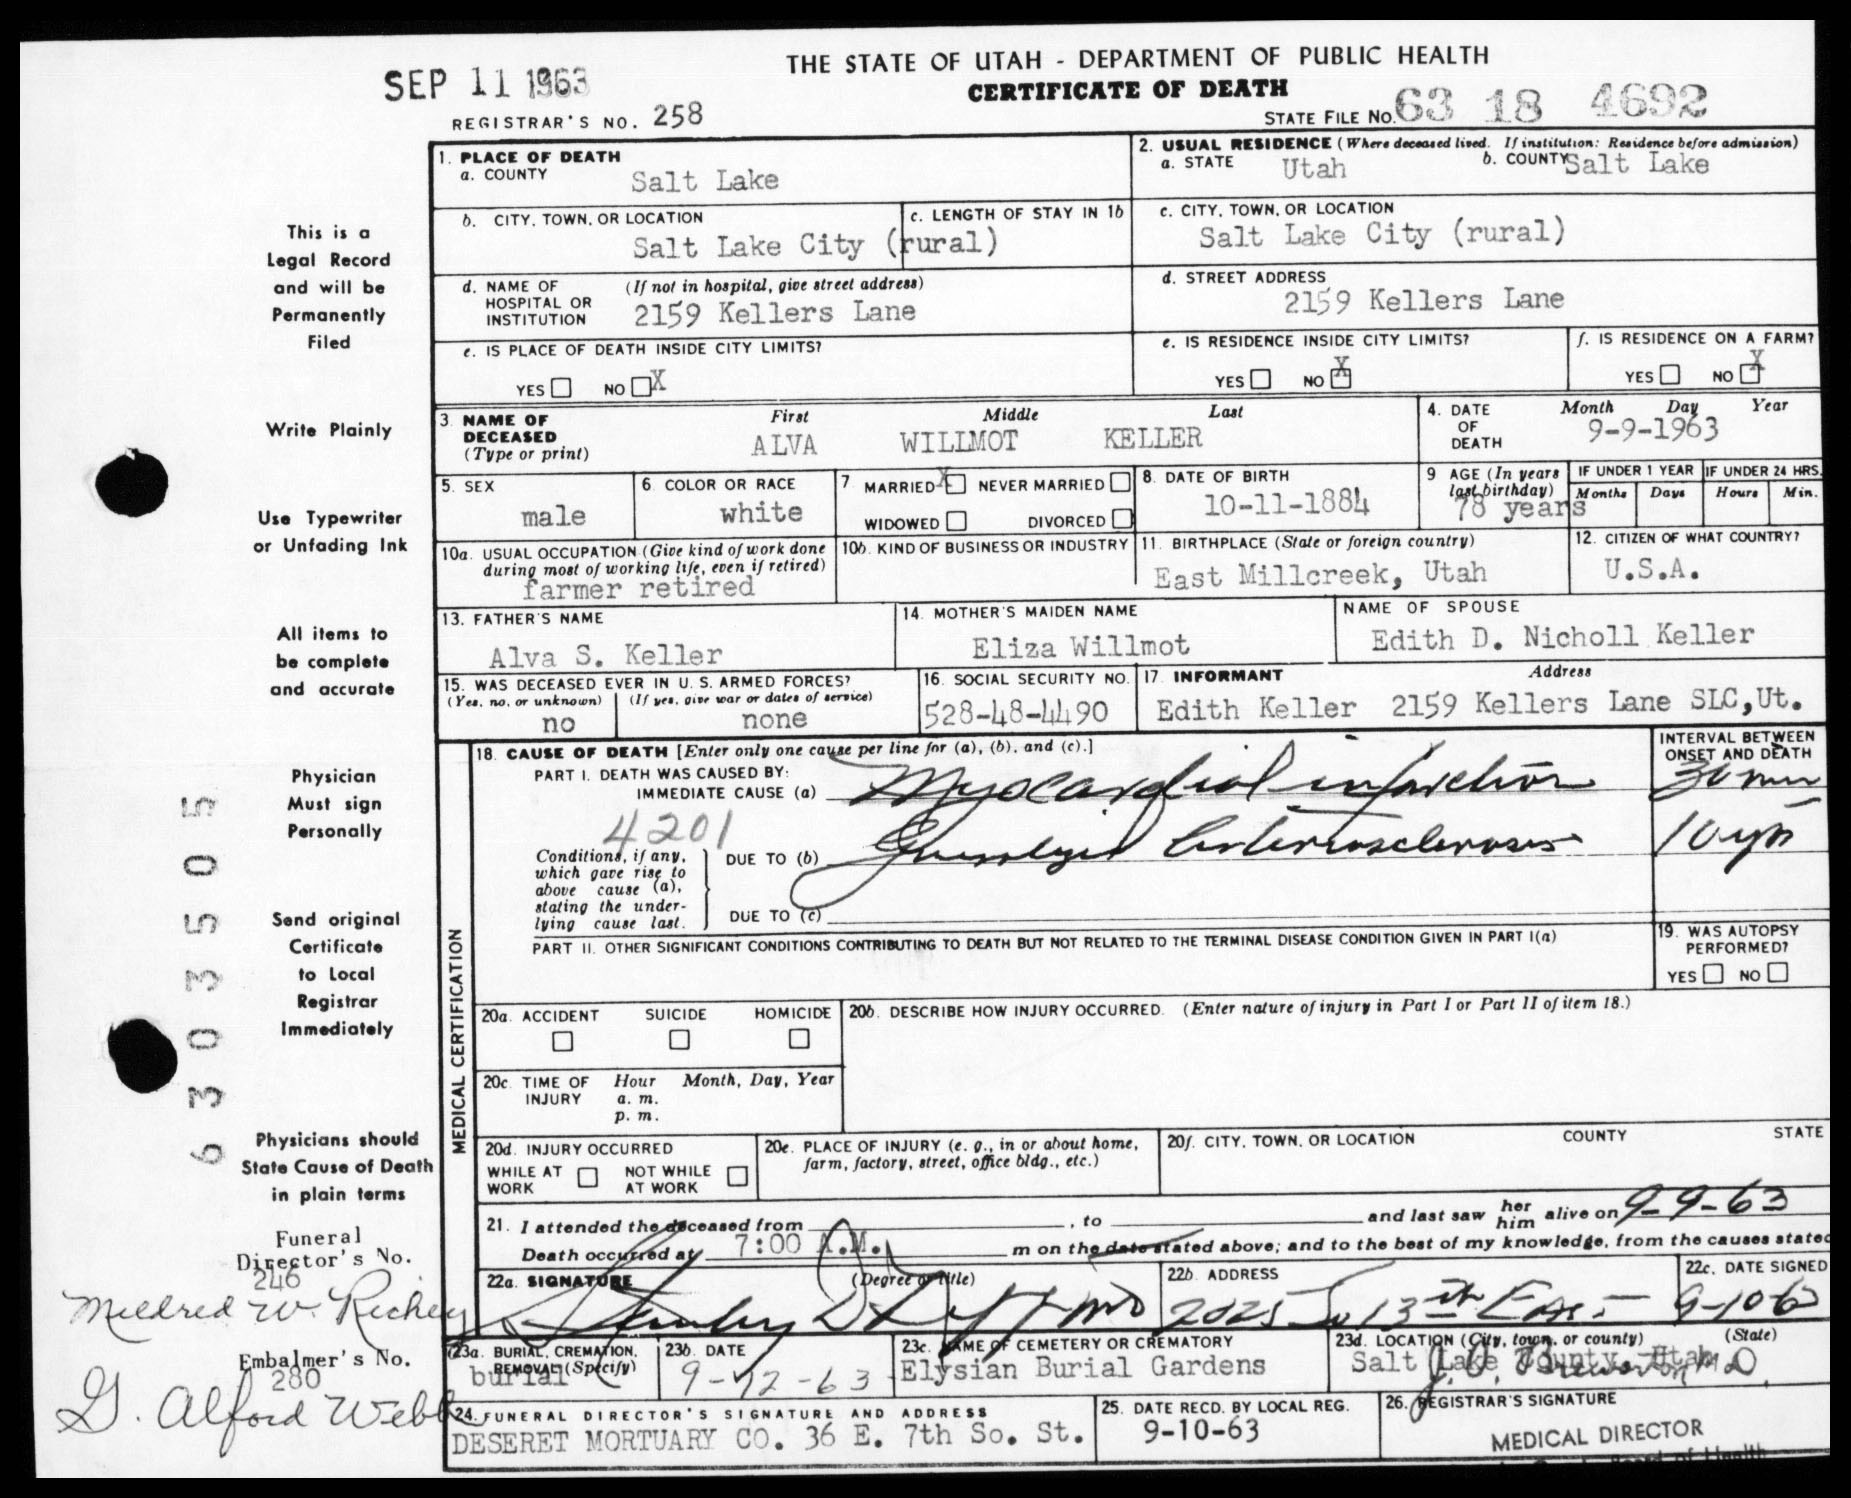 THE STATE OF UTAH - DEPARTMENT OF PUBLIC HEALTH
SEP 11 1963
CERTIFICATE OF DEATH
REGISTRAR'S NO. 258
STATE FILE NO. 63 18 4692
1. PLACE OF DEATH
a. COUNTY Salt Lake
2. USUAL RESIDENCE (Where deceased lived. If institution: Residence before admission)
a. STATE Utah b. COUNTY Salt Lake
b. CITY, TOWN, OR LOCATION Salt Lake City (rural)
c. LENGTH OF STAY IN 1b
c. CITY, TOWN, OR LOCATION
Salt Lake City (rural)
d. NAME OF HOSPITAL OR INSTITUTION (If not in hospital, give street address)
2159 Kellers Lane
d. STREET ADDRESS
2159 Kellers Lane
e. IS PLACE OF DEATH INSIDE CITY LIMITS?
YES NO X
e. IS RESIDENCE INSIDE CITY LIMITS?
YES NO X
f. IS RESIDENCE ON A FARM?
YES NO X
3. NAME OF DECEASED (Type or print)
First Middle Last
ALVA WILLMOT KELLER
4. DATE OF DEATH Month Day Year
9-9-1963
5. SEX
male
6. COLOR OR RACE
white
7. MARRIED X NEVER MARRIED
WIDOWED DIVORCED
8. DATE OF BIRTH
10-11-1884
9 AGE (In years last birthday)
78 years
IF UNDER 1 YEAR Months Days
IF UNDER 24 HRS. Hours Min.
10a. USUAL OCCUPATION (Give kind of work done during most of working life, even if retired)
farmer retired
10b. KIND OF BUSINESS OR INDUSTRY
11. BIRTHPLACE (State or foreign country)
East Millcreek, Utah
12. CITIZEN OF WHAT COUNTRY?
U.S.A.
13. FATHER'S NAME
Alva S. Keller
14. MOTHER'S MAIDEN NAME
Eliza Willmot
NAME OF SPOUSE
Edith D. Nicholl Keller
15. WAS DECEASED EVER IN U. S. ARMED FORCES?
(Yes, no, or unknown) (If yes, give war or dates of service)
no none
16. SOCIAL SECURITY NO.
528-48-4490
17. INFORMANT Address
Edith Keller 2159 Kellers Lane SLC,Ut.
MEDICAL CERTIFICATION
18. CAUSE OF DEATH [Enter only one cause per line for (a), (b), and (c).]
INTERVAL BETWEEN ONSET AND DEATH
PART I. DEATH WAS CAUSED BY:
IMMEDIATE CAUSE (a) Myocardial infarction 30 min
4201
Conditions, if any, which gave rise to above cause (a), stating the underlying cause last.
DUE TO (b) Generalized Arteriosclerosis 10 yrs
DUE TO (c)
PART II. OTHER SIGNIFICANT CONDITIONS CONTRIBUTING TO DEATH BUT NOT RELATED TO THE TERMINAL DISEASE CONDITION GIVEN IN PART I(a)
19. WAS AUTOPSY PERFORMED?
YES NO
20a. ACCIDENT SUICIDE HOMICIDE
20b. DESCRIBE HOW INJURY OCCURRED. (Enter nature of injury in Part I or Part II of item 18.)
20c. TIME OF INJURY Hour a. m. p. m. Month, Day, Year
20d. INJURY OCCURRED
WHILE AT WORK NOT WHILE AT WORK
20e. PLACE OF INJURY (e. g., in or about home, farm, factory, street, office bldg., etc.)
20f. CITY, TOWN, OR LOCATION COUNTY STATE
21. I attended the deceased from , to and last saw her him alive on 9-9-63
Death occurred at 7:00 A.M. m on the date stated above; and to the best of my knowledge, from the causes stated
22a. SIGNATURE (Degree or title)
22b. ADDRESS
2025 So 13th East
22c. DATE SIGNED
9-10-6
23a. BURIAL, CREMATION, REMOVAL (Specify)
burial
23b. DATE
9-12-63
23c. NAME OF CEMETERY OR CREMATORY
Elysian Burial Gardens
23d. LOCATION (City, town, or county) (State)
Salt Lake County Utah
24. FUNERAL DIRECTOR'S SIGNATURE AND ADDRESS
DESERET MORTUARY CO. 36 E. 7th So. St.
25. DATE RECD. BY LOCAL REG.
9-10-63
26. REGISTRAR'S SIGNATURE
MEDICAL DIRECTOR
This is a
Legal Record
and will be
Permanently
Filed
Write Plainly
Use Typewriter
or Unfading Ink
All items to
be complete
and accurate
Physician
Must sign
Personally
Send original
Certificate
to Local
Registrar
Immediately
Physicians should
State Cause of Death
in plain terms
6 3 0 3 5 5 0 5
Funeral
Director's No.
246
Mildred W. Richey
Embalmer's No.
280
G. Alford Webb